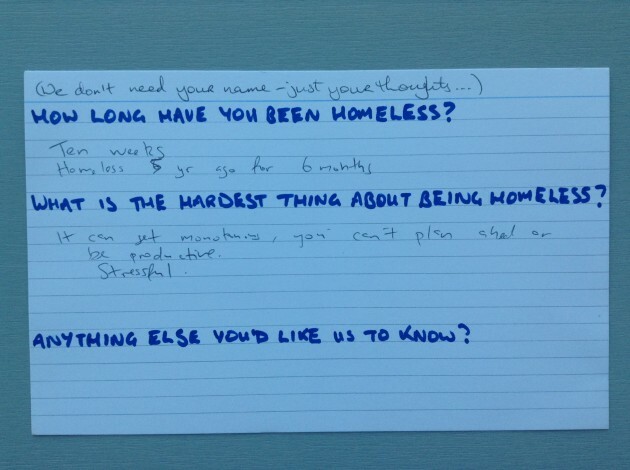 (We don't need your name - just your thoughts...)
HOW LONG HAVE YOU BEEN HOMELESS?
Ten weeks
Homeless 5 yr ago for 6 months
WHAT IS THE HARDEST THING ABOUT BEING HOMELESS?
It can get monotonous, you can't plan ahead or
be productive.
Stressful.
ANYTHING ELSE YOU'D LIKE US TO KNOW?